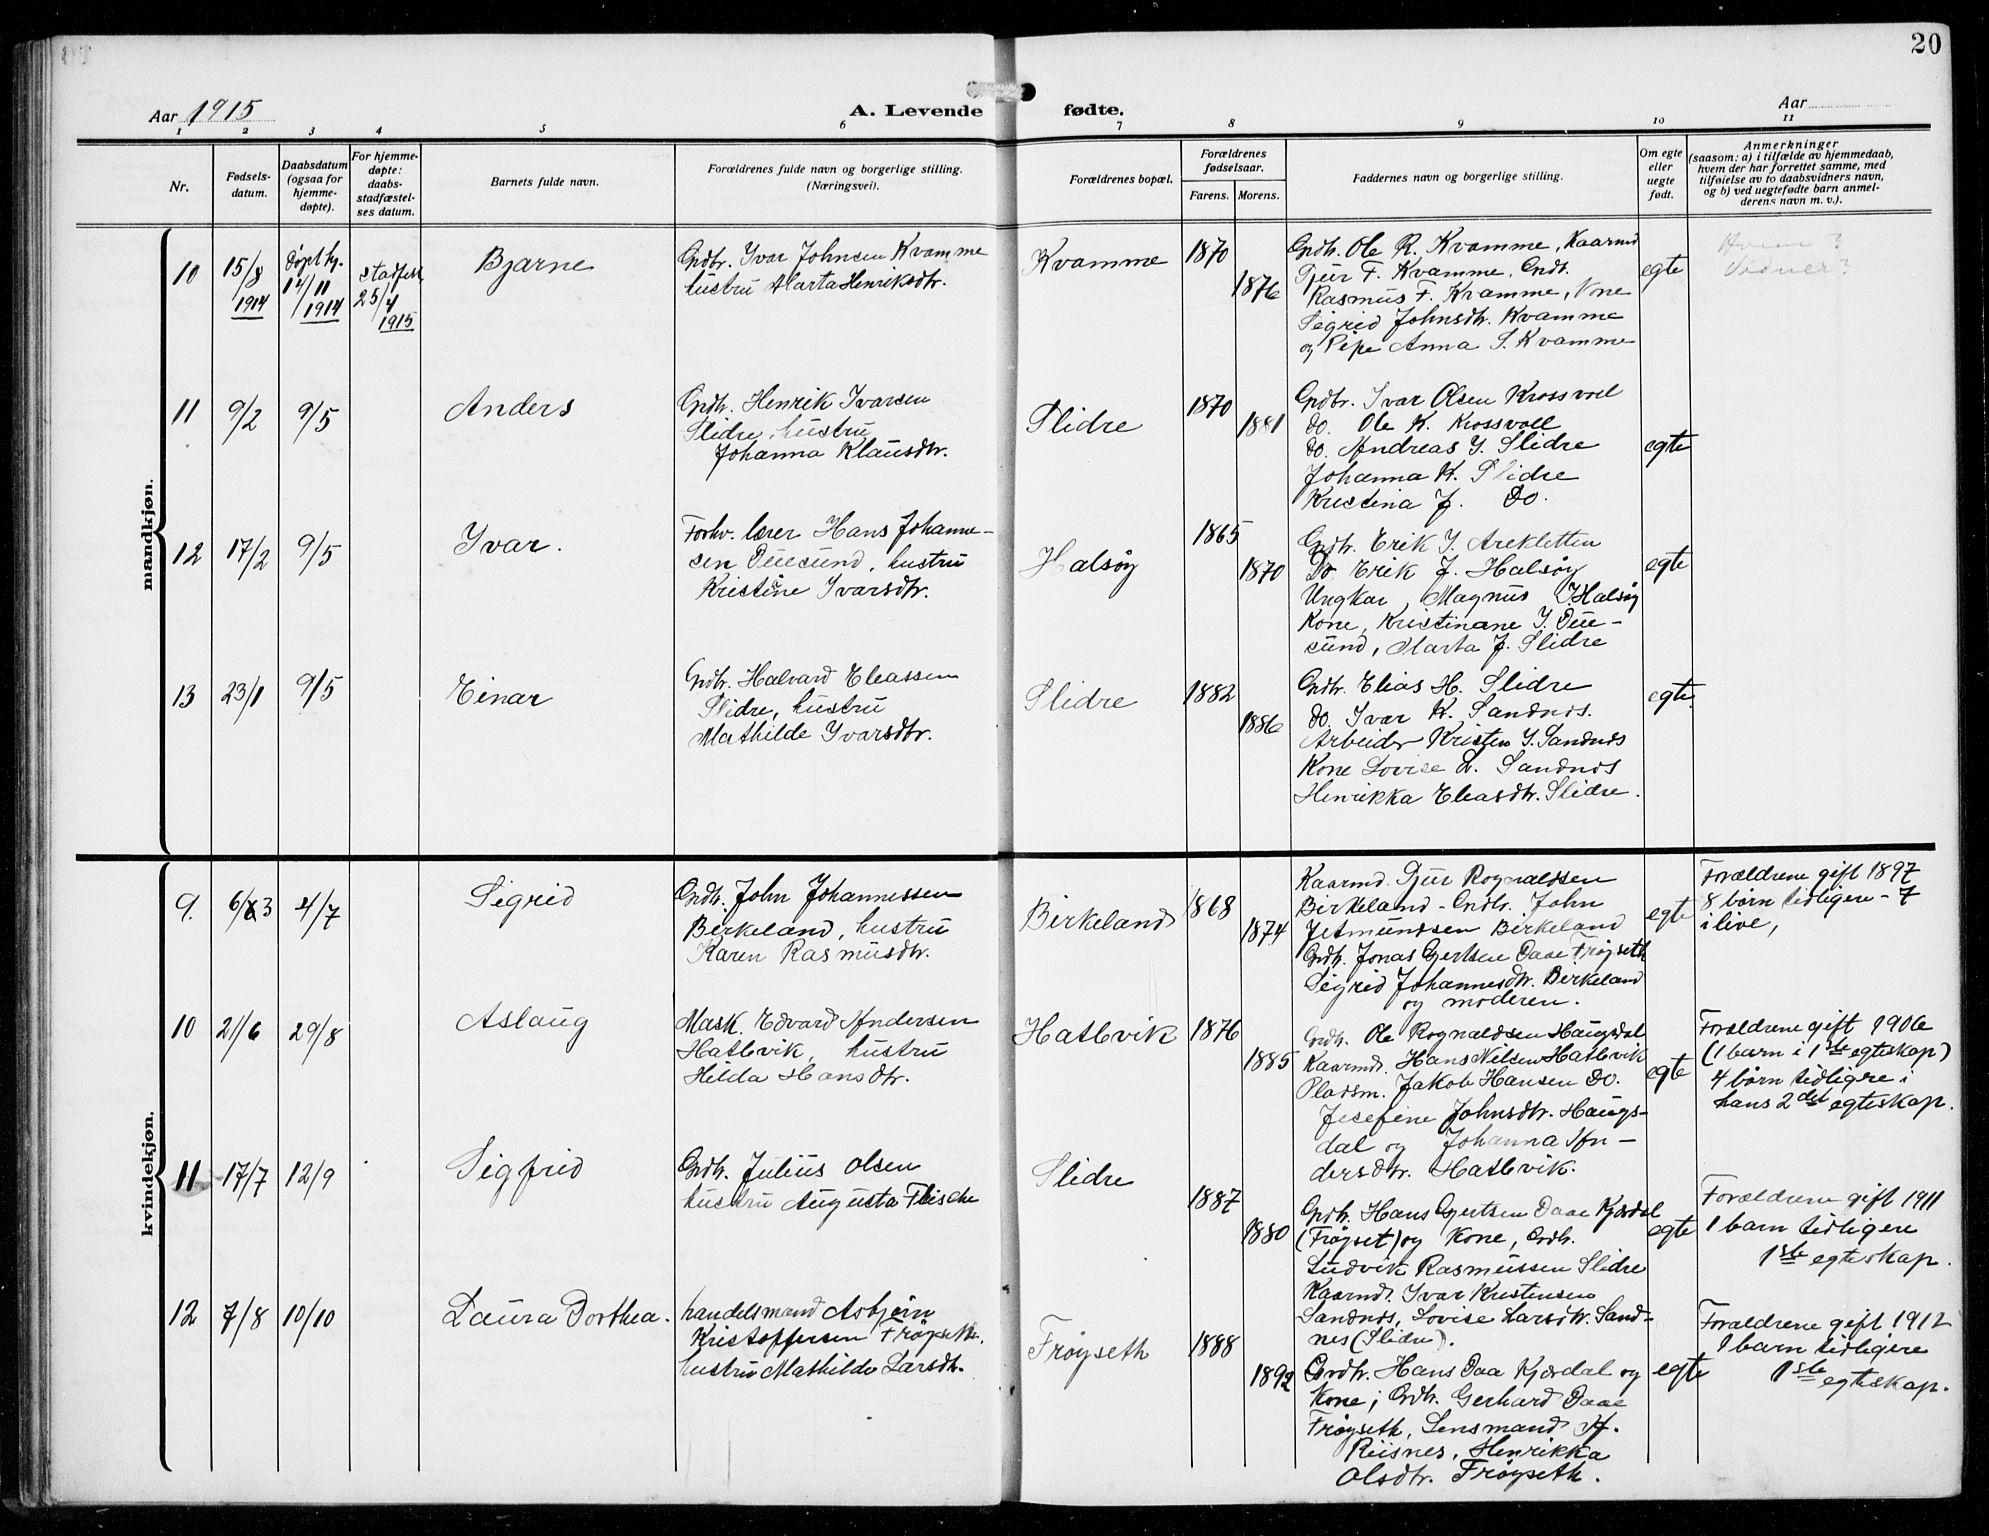 20
Aar 1915
A. Levende fødte.
Aar
1 2 3 4 5 6 7 8 9 10 11
Nr.
Fødsels-
datum.
Daabsdatum
(ogsaa for
hjemme-
døpte).
For hjemme-
døpte:
daabs-
stadfæstel-
ses datum.
Barnets fulde navn.
Forældrenes fulde navn og borgerlige stilling.
(Næringsvei).
Forældrenes bopæl.
Forældrenes
fødselsaar.
Farens. Morens.
Faddernes navn og borgerlige stilling.
Om egte
eller
uegte
født.
Anmerkninger
(saasom: a) i tilfælde av hjemmedaab,
hvem der har forrettet samme, med
tilføielse av to daabsvidners navn,
og b) ved uegtefødte barn anmel-
derens navn m. v.).
mandkjøn.
10
15/8
1914
Døpt hj.
14/11
1914
stadfest
25/4
1915
Bjarne
Grdbr. Ivar Johnsen Kvamme
hustru Marta Henriksdtr.
Kvamme
1870
1876
Grdb. Ole R. Kvamme, Kaarmd
Gjur F. Kvamme, Grdb.
Rasmus F. Kvamme, Kone
Sigrid Johnsdtr. Kvamme
og Pike Anna S. Kvamme
egte
Hvem?
Vidner?
11
9/2
9/5
Anders
Grdbr. Henrik Ivarsen
Slidre, hustru
Johanna Klausdtr.
Slidre
1870
1881
Grdbr. Ivar Olsen Krossvoll
do. Ole K. Krossvoll
do. Andreas I. Slidre
Johanna K. Slidre
Kristina J. Do.
egte
12
17/2
9/5
Ivar.
Forhv. lærer Hans Johanne-
sen Duesund, hustru
Kristine Ivarsdtr.
Halsøy
1865
1870
Grdbr. Erik I. Arekletten
Do Erik J. Halsøy
Ungkar, Magnus J Halsøy
Kone, Kristinane I. Due-
sund, Marta J. Slidre
egte
13
23/1
9/5
Einar
Grdbr. Halvard Eleassen
Slidre, hustru
Mathilde Ivarsdtr.
Slidre
1882
1886
Grdbr. Elias H. Slidre
do. Ivar K. Sandnes.
Arbeider Kristen I. Sandnes
Kone Lovise L. Sandnes
Henrikka Eleasdtr. Slidre.
egte.
kvindekjøn.
9.
6/3
4/7
Sigrid
Grdbr. John Johannessen
Birkeland, hustru
Karen Rasmusdtr.
Birkeland
1868
1874
Kaarmd. Gjur Rognaldsen
Birkeland - Grdbr. John
Jetmundsen Birkeland
Grdbr. Jonas Gjertsen Daae Frøyseth
Sigrid Johannesdtr. Birkeland
og moderen.
egte
Forældrene gift 1897
8 børn tidligere - 7
i live,
10
21/6
29/8
Aslaug
Mask. Edvard Andersen
Hatlevik, hustru
Hilda Hansdtr.
Hatlevik
1876
1885
Grdbr. Ole Rognaldsen Haugsdal
Kaarmd. Hans Nilsen Hatlevik
Pladsm. Jakob Hansen Do.
Josefine Johnsdtr. Haugs-
dal og Johanna An-
dersdtr. Hatlevik.
egte
Forældrene gift 1906
(1 barn i 1ste egteskap)
4 børn tidligere i
hans 2det egteskap.
11
17/7
12/9
Sigfrid
Grdbr. Julius Olsen
hustru Augusta Flische
Slidre
1887
1880
Grdbr. Hans Gjertsen Daae Kjærdal
(Frøyset) og Kone, Grdb.
Ludvik Rasmussen Slidre
Kaarmd. Ivar Kristensen
Sandnes, Lovise Larsdtr. Sand-
nes (Slidre).
egte
Forældrene gift 1911
1 barn tidligere
1ste egteskap.
12
7/8
10/10
Laura Dorthea.
handelsmand Asbjørn
Kristoffersen Frøyseth.
hustru Mathilde Larsdtr.
Frøyseth
1888
1892
Grdbr. Hans Daa Kjærdal og
Kone; Grdbr. Gerhard Daae
Frøyseth, Lensmand A.
Riisnes, Henrikka
Olsdtr. Frøyseth.
egte
Forældrene gift 1912
1 barn tidligere
1ste egteskap.